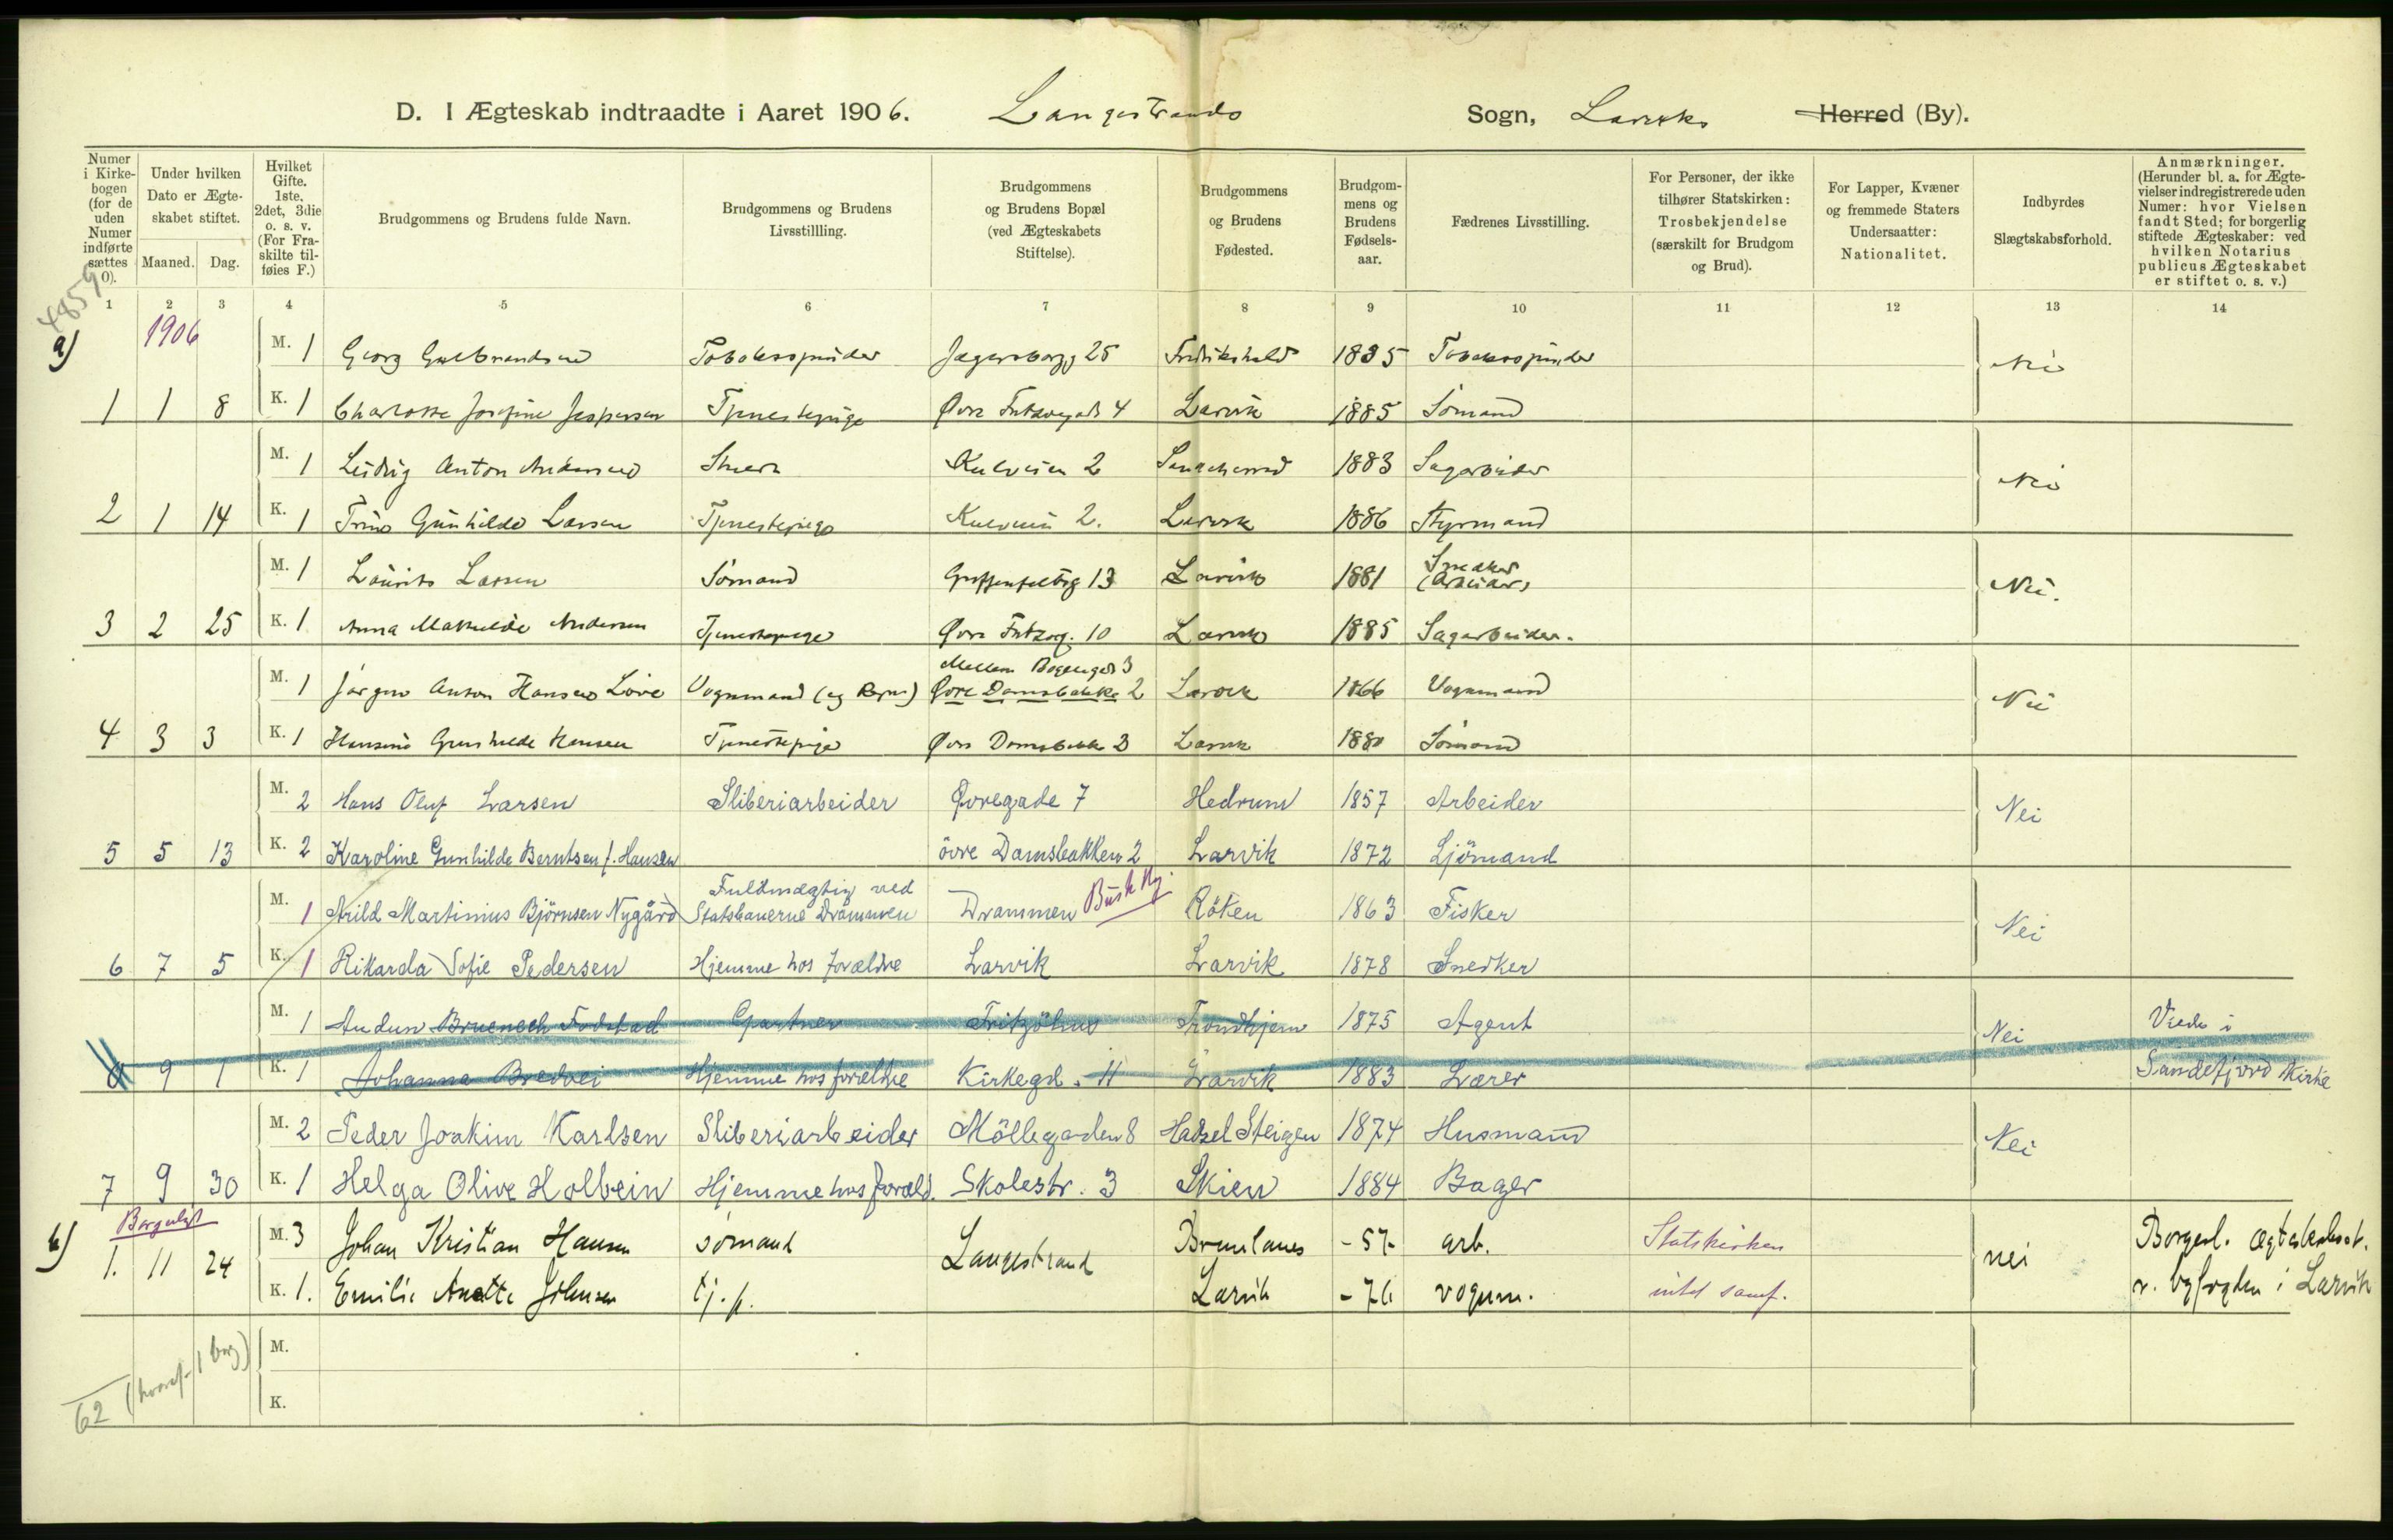 D. I Ægteskab indtraadte i Aaret 1906. Langestrands Sogn, Larviks Herred (By).
Numer i Kirkebogen (for de uden Numer indførte sættes 0).
Under hvilken Dato er Ægteskabet stiftet.
Maaned. Dag.
Hvilket Gifte. 1ste, 2det, 3die o. s. v. (For Fraskilte tilføies F.)
Brudgommens og Brudens fulde Navn.
Brudgommens og Brudens Livsstillling.
Brudgommens og Brudens Bopæl (ved Ægteskabets Stiftelse).
Brudgommens og Brudens Fødested.
Brudgommens og Brudens Fødselsaar.
Fædrenes Livsstilling.
For Personer, der ikke tilhører Statskirken: Trosbekjendelse (særskilt for Brudgom og Brud).
For Lapper, Kvæner og fremmede Staters Undersaatter: Nationalitet.
Indbyrdes Slægtskabsforhold.
Anmærkninger. (Herunder bl. a. for Ægtevielser indregistrerede uden Numer: hvor Vielsen fandt Sted; for borgerlig stiftede Ægteskaber: ved hvilken Notarius publicus Ægteskabet er stiftet o. s. v.)
1 2 3 4 5 6 7 8 9 10 11 12 13 14
4859
a) 1906
M. 1 Georg Gulbrandsen Tobaksspinder Jegersborgg 25 Fredrikshald 1885 Tobaksspinder Nei
1 1 8 K. 1 Charlotte Josefine Jespersen Tjenestepige Øvre Fritzøegade 4 Larvik 1885 Sømand
M. 1 Ludvig Anton Andersen Kulveien 2 Sandeherred 1883 Sagarbeider Nei
2 1 14 K. 1 Trine Gunhilde Larsen Tjenestepige Kulveien 2. Larvik 1886 Styrmand
M. 1 Laurits Larsen Sømand Griffenfeldtsg 13 Larvik 1881 Snedker (Arbeider) Nei.
3 2 25 K. 1 Anna Mathilde Andersen Tjenestepige Øvre Fritzøeg. 10 Larvik 1885 Sagarbeider.
Mellem Bøgegade 3
M. 1 Jørgen Anton Hansen Löve Vognmand Øvre Damsbakke 2 Larvik 1866 Vognmand Nei
4 3 3 K. 1 Hansine Gunhilde Hansen Tjenestepige Øvre Damsbakke 2 Larvik 1880 Sømand
M. 2 Hans Oluf Larsen Sliberiarbeider Øvregade 7 Hedrum 1857 Arbeider Nei
5 5 13 K. 2 Karoline Gunhilde Berntsen f. Hansen övre Damsbakken 2 Larvik 1872 Sjömand
Fuldmægtig ved
M. 1 Arild Martinius Björnsen Nygård Statsbanerne Drammen Drammen Busk Röken 1863 Fisker Nei
6 7 5 K. 1 Rikarda Sofie Pedersen Hjemme hos forældre Larvik Larvik 1878 Snedker
M. 1 Audun Bruenech Fodstad Gartner Fritzöhus Trondhjem 1875 Agent Nei Viede i
9 1 K. 1 Johanna Bredvei Hjemme hos forældre Kirkegd. 11 Larvik 1883 Lærer Sandefjord Kirke
M. 2 Peder Joakim Karlsen Sliberiarbeider Möllegaden 8 Hadsel Steigen 1874 Husmand Nei
7 9 30 K. 1 Helga Olive Holbein Hjemme hos foræld. Skolestr. 3 Skien 1884 Bager
Borgerligt
b) M. 3 Johan Kristian Hansen sømand Langestrand Brunlanes - 57- arb. Statskirken nei Borgerl. ægteskabsst.
1. 11 24 K. 1. Emilie Anette Johnsen tj. p. Larvik - 76 vognm. intet samf. v. byfogden i Larvik
M.
K.
62 (hvoraf 1 borg)